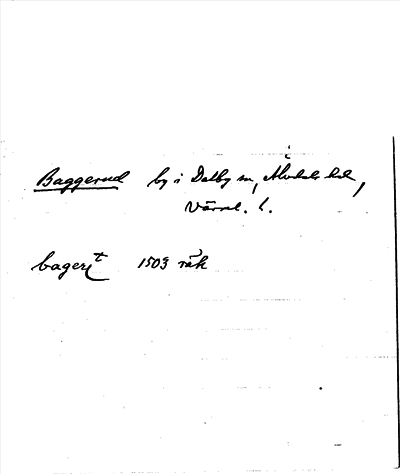 Baggerud by i Dalby sn, Älvdals hd,
Värml. l.
bagert 1503 räk